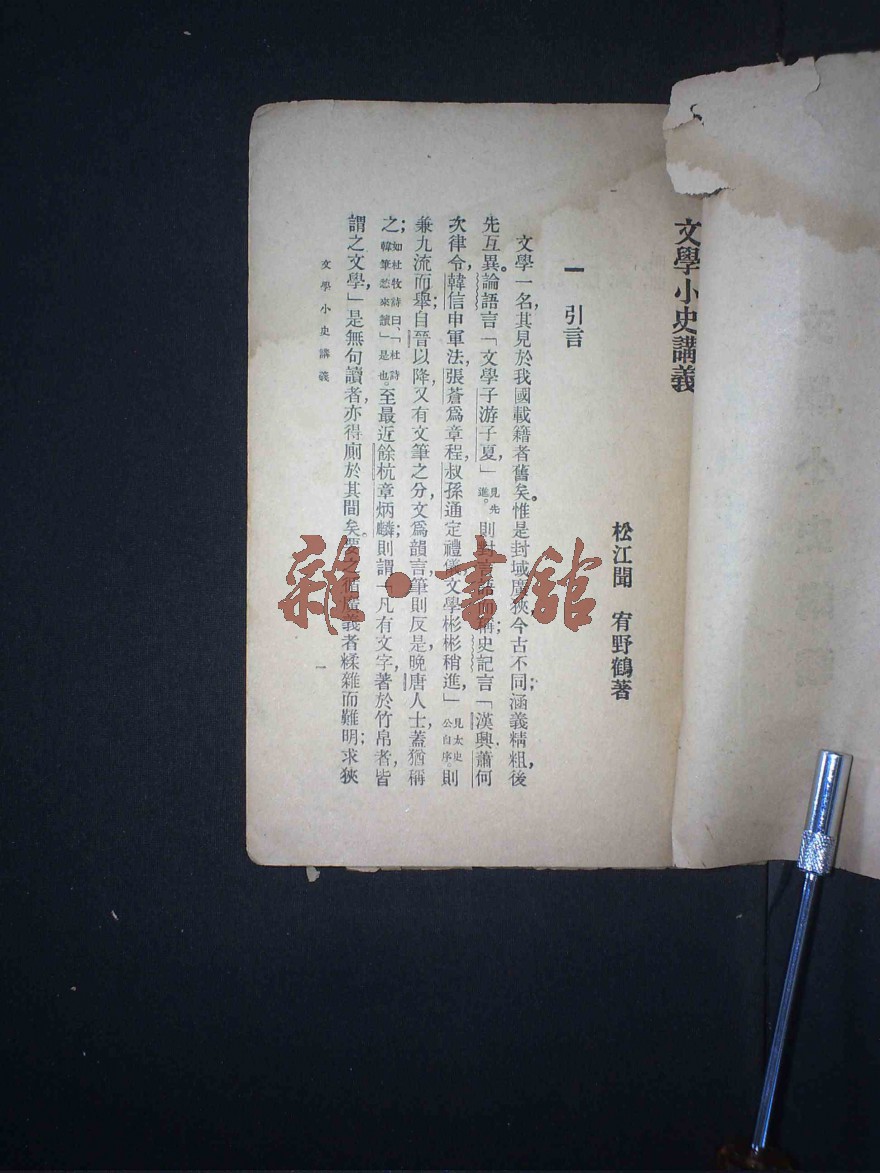 文學小史講義
松江聞　宥野鶴著
一　引言
文學一名，其見於我國載籍者舊矣。惟是封域廣狹，今古不同；涵義精粗，後
先互異。論語言「文學子游子夏，」見先進。則對言語而稱；史記言「漢興蕭何
次律令，韓信申軍法，張蒼爲章程，叔孫通定禮儀，文學彬彬稍進，」見太史公自序。則
兼九流而舉；自晉以降，又有文筆之分，文爲韻言，筆則反是，晚唐人士，蓋猶稱
之；如杜牧詩曰、「杜詩韓筆愁來讀」是也。至最近餘杭章炳麟；則謂「凡有文字著於竹帛者，皆
謂之文學，」是無句讀者，亦得廁於其間矣。要之循廣義者糅雜而難明；求狹
文學小史講義
一
雜·書館